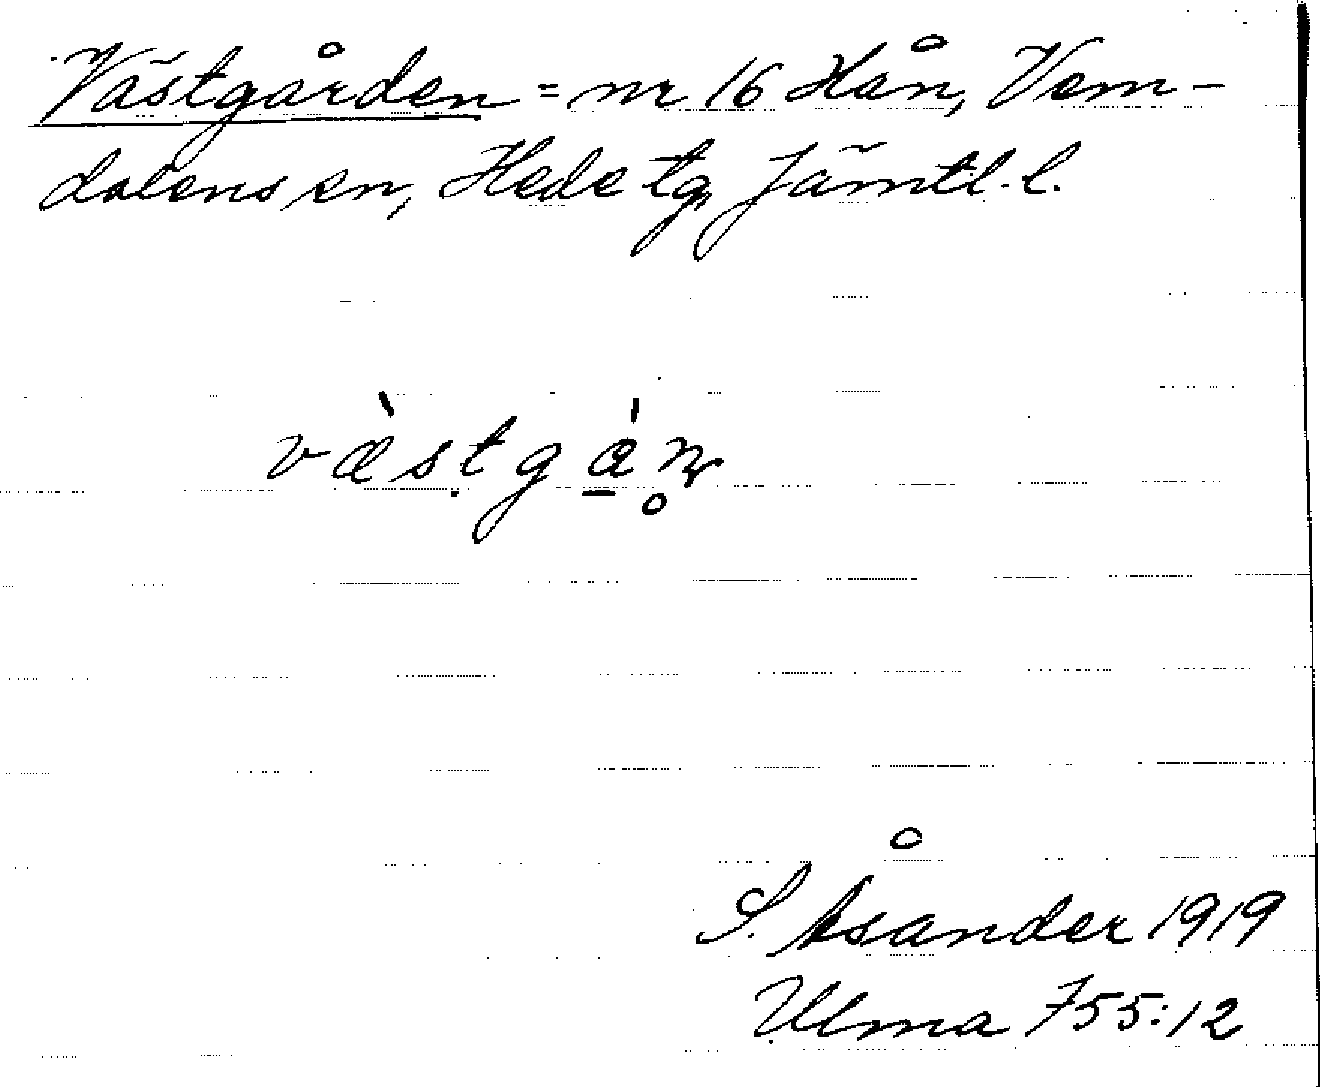 Västgården = nr 16 Hån, Vem-
dalens sn, Hede tg, Jämtl. l.
västgan
S. Åsander 1919
Ulma 755:12